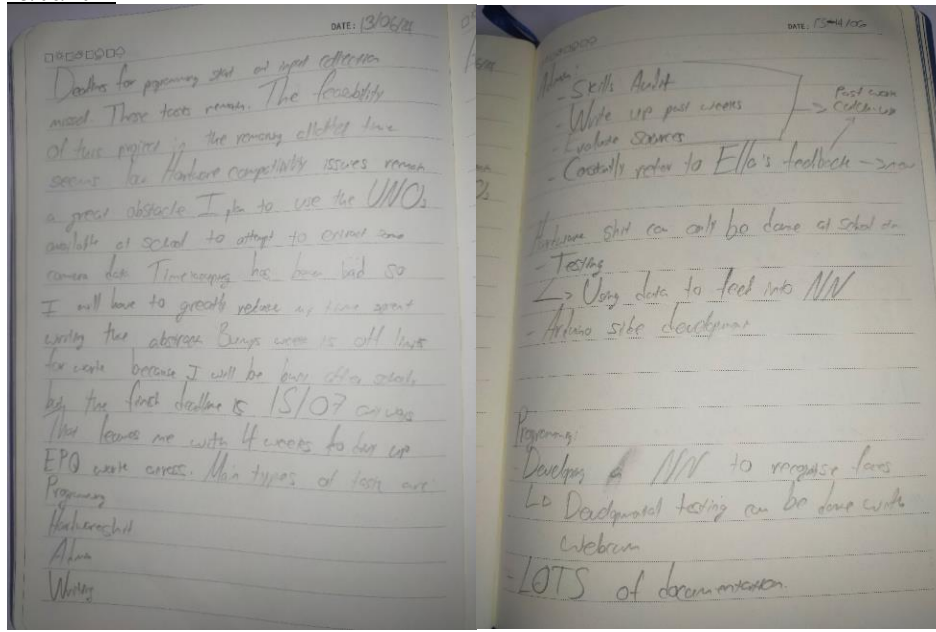 DATE: 13/06/
Deadlines for programming start and input collection
missed. These tasks remain. The feasibility
of this project in the remaining allotted time
seems low Hardware compatibility issues remain
a great obstacle I plan to use the UNOs
available at school to attempt to extract some
camera data Timekeeping has been bad so
I will have to greatly reduce my time spent
writing the abstract week is off limits
for work because I will be busy after school
but the final deadline is 15/07 anyways
That leaves me with 4 weeks to day up
EPQ work across. Main types of task are
Programming
Hardwareshit
Admin
Writing
DATE: 13-14/06
Admin:
- Skills Audit
- Write up past weeks
- Evaluate Sources
- Constantly refer to Ella's feedback ->
Past work
-> Catch-up
Hardware shit can only be done at school
- Testing
-> Using data to feed into NN
- Arduino side development
Programming:
- Developing NN to recognise faces
-> Developmental testing can be done with
webcam
- LOTS of documentation.